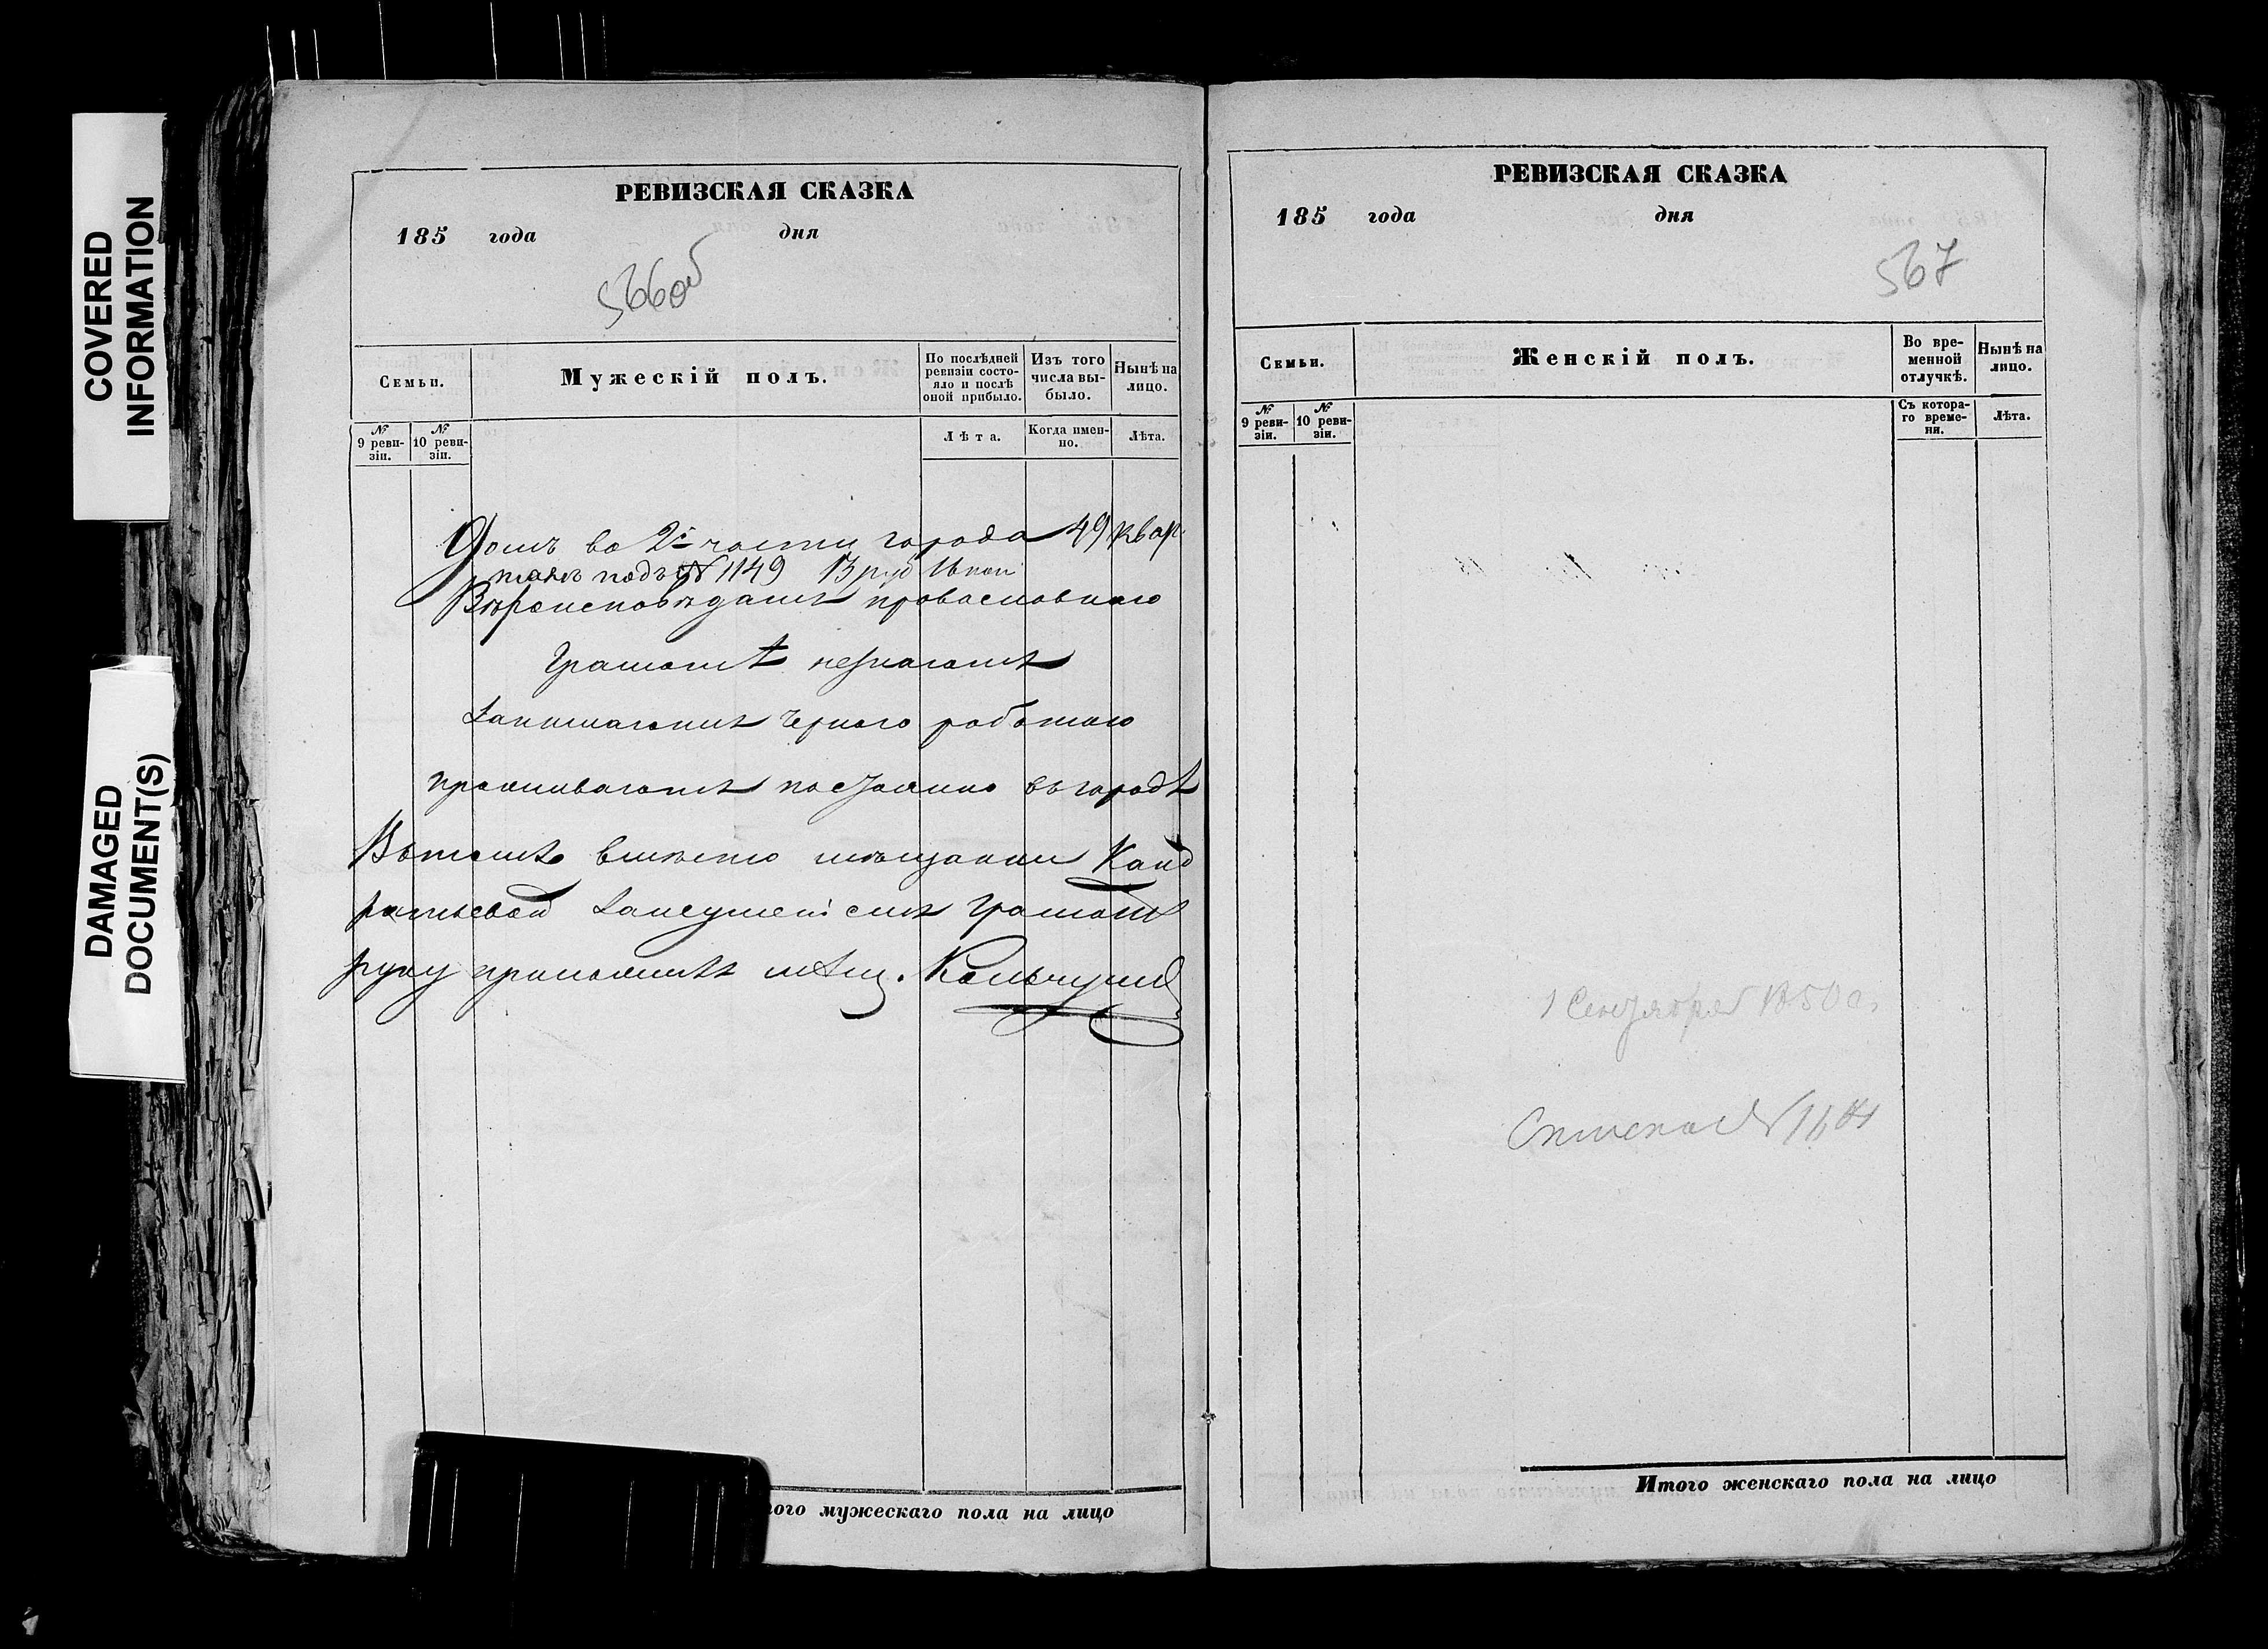 COVERED
INFORMATION
DAMAGED
DOCUMENT(S)
РЕВИЗСКАЯ СКАЗКА
185 года дня
566об
Семьи.
Мужескій полъ.
По послѣдней ревизіи состояло и послѣ оной прибыло.
Изъ того числа выбыло.
Нынѣ на лицо.
№ 9 ревизіи.
№ 10 ревизіи.
Лѣта.
Когда именно.
Лѣта.
Домъ во 2й части города 49 квар
талѣ подъ № 1149
Вѣроисповѣданія православнаго
Грамотѣ незнаютъ
Занимаются черною работою
проживаютъ постоянно въ городѣ
Вътомъ вмѣсто мѣщанки Канд
ратьевой грамотѣ
руку приложилъ мѣщ.
того мужескаго пола на лицо
РЕВИЗСКАЯ СКАЗКА
185 года дня
567
Семьи.
Женскій полъ.
Во временной отлучкѣ.
Нынѣ на лицо.
№ 9 ревизіи.
№ 10 ревизіи.
Съ котораго времени.
Лѣта.
1 Сентября 1850 г.
Итого женскаго пола на лицо